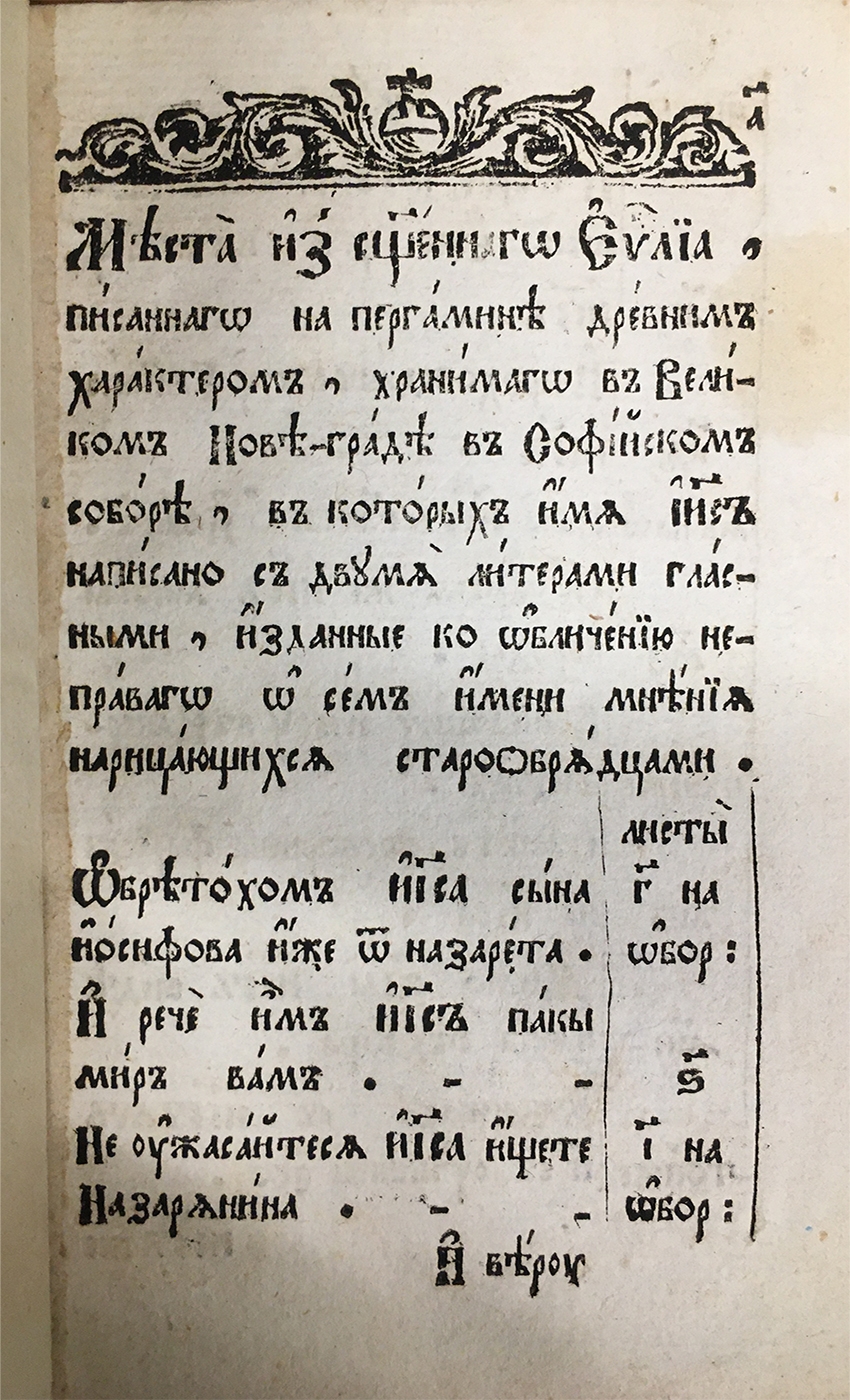 а҃
Мѣста̀ и҆з̾ сщ҃е́ннагѡ Є҆ѵⷢ҇лїа ,
пи́саннагѡ на перга́минѣ дре́внимъ
хара́ктеромъ , храни́магѡ въ Вели́-
комъ Новѣ-гра́дѣ въ Софі́йскомъ
собо́рѣ , въ кото́рыхъ и҆́мѧ і҆и҃съ
напи́сано съ двꙋмѧ̀ ли́терами гла́с-
ными , и҆́зданные ко ѡ҆бличе́нїю не-
пра́вагѡ ѡ҆ се́мъ и҆́мени мнѣ́нїѧ
нарица́ющихсѧ старообрѧ́дцами .
листы̀
Ѡ҆брѣто́хомъ и҆і҃са сы́на г҃ на
и҆ѡ́сифова и҆́же ѿ назаре́та . ѡ҆бор :
И҆ речѐ и҆̀мъ и҆і҃съ па́кы
ми́ръ ва́мъ . - - ѕ҃
Не ѹ҆жаса́йтесѧ и҆і҃са и҆́щете і҃ на
Назарѧни́на . - - ѡ҆бор :
И҆ вѣ́рѹ